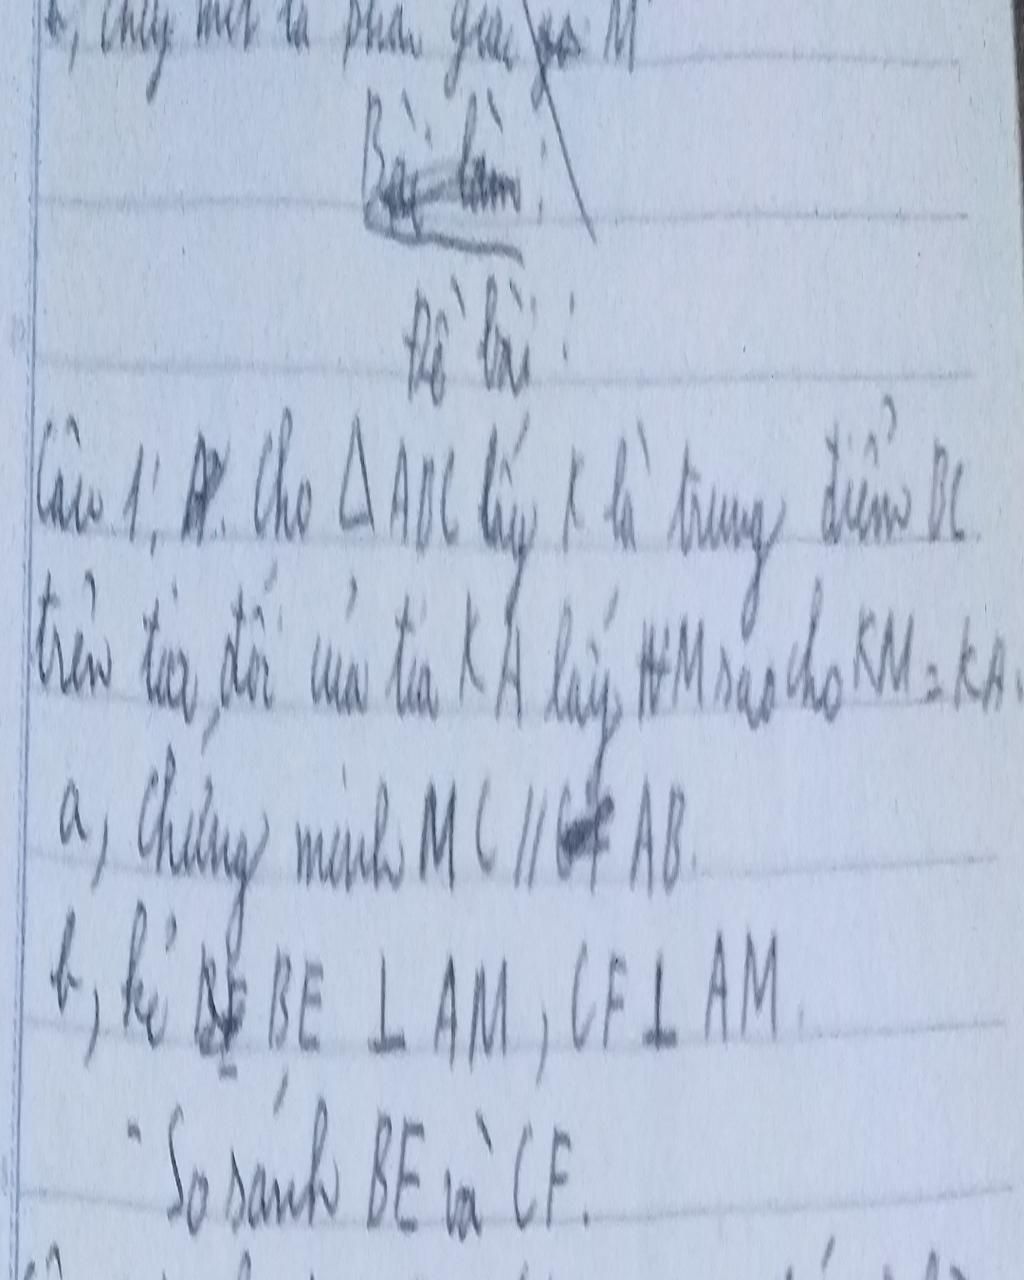 Bài làm:
Đề bài:
Câu 1: Cho △ABC lấy K là trung điểm BC
trên tia đối của tia KA lấy M sao cho KM = KA.
a, Chứng minh MC // AB.
b, kẻ BE ⊥ AM, CF ⊥ AM.
- So sánh BE và CF.